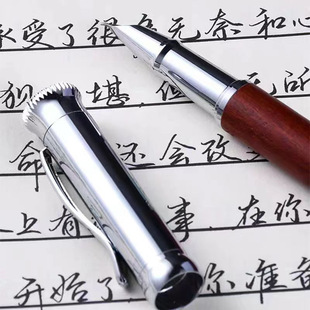 承受了很多无奈和心
狈 堪 但 无所
命 还会改
上有 事 在你
开始了 你准备